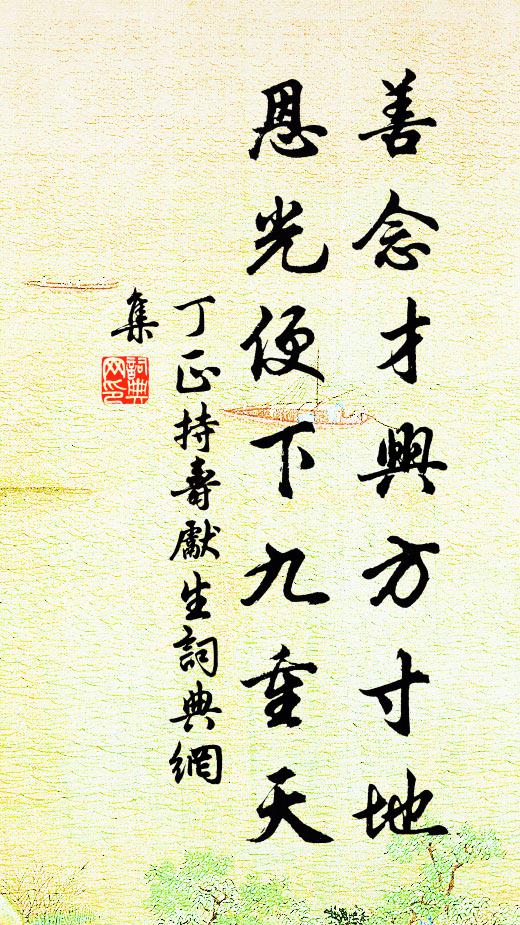 善念才興方寸地
恩光便下九重天
丁正持壽獻生詞典網
集
詞典
網印